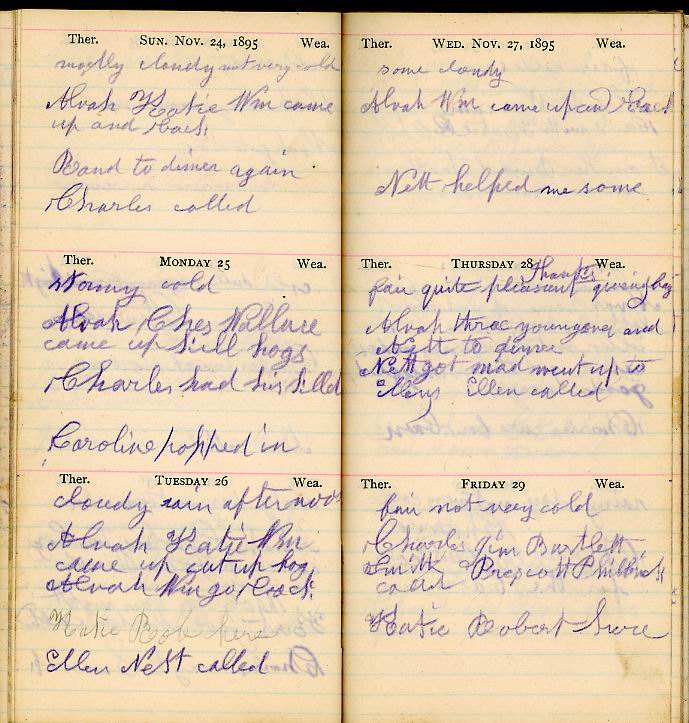 Ther. SUN. NOV. 24, 1895 Wea.
mostly cloudy not very cold
Alvah Katie Wm came
up and back
Band to dinner again
Charles called
Ther. MONDAY 25 Wea.
Stormy cold
Alvah Ches Wallace
came up kill hogs
Charles had his killed
Caroline popped in
Ther. TUESDAY 26 Wea.
cloudy rain afternoon
Alvah Katie Wm
came up cut up hog
Alvah Wm go back
Katie Rob here
Ellen Nett called
Ther. WED. NOV. 27, 1895 Wea.
some cloudy
Alvah Wm came up and back
Nett helped me some
Ther. THURSDAY 28 Wea.
Thanks
fair quite pleasant giving day
Alvah three young ones and
Nett to dinner
Nett got mad went up to
Ellen called
Ther. FRIDAY 29 Wea.
fair not very cold
Charles Jim Bartlett
Smith Prescott Philbrick
called
Katie Robert here